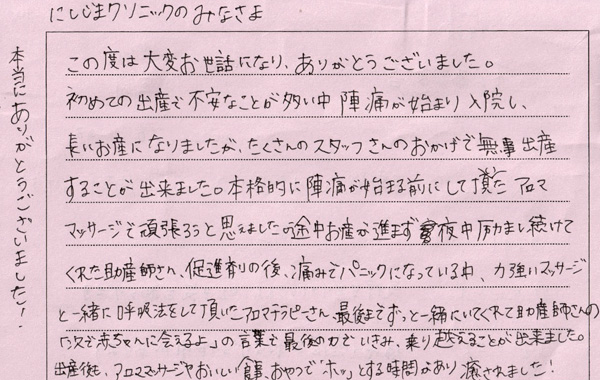 にしじまクリニックのみなさま
この度は大変お世話になり、ありがとうございました。
初めての出産で不安なことが多い中 陣痛が始まり入院し、
長いお産になりましたが、たくさんのスタッフさんのおかげで無事出産
することが出来ました。本格的に陣痛が始まる前にして頂いた アロマ
マッサージで頑張ろうと思えましたの途中お産が進まず 夜中励まし続けて
くれた助産師さん、促進剤の後、痛みでパニックになっている中、力強いマッサージ
と一緒に呼吸法をして頂いたアロマテラピーさん、最後までずっと一緒にいてくれて助産師さんの
「次で赤ちゃんに会えるよ」の言葉で最後の力でいきみ、乗り越えることが出来ました。
出産後も、アロママッサージやおいしい食事、おやつで「ホッ」とする時間もあり癒されました!
本当にありがとうございました!